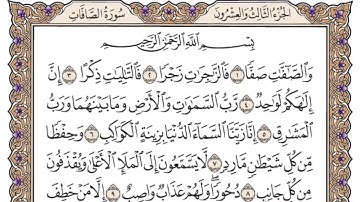 الجزء الثالث والعشرون سورة الصافات
بِسْمِ اللَّهِ الرَّحْمَٰنِ الرَّحِيمِ
وَالصَّافَّاتِ صَفًّا ١ فَالزَّاجِرَاتِ زَجْرًا ٢ فَالتَّالِيَاتِ ذِكْرًا ٣ إِنَّ
إِلَٰهَكُمْ لَوَاحِدٌ ٤ رَّبُّ السَّمَاوَاتِ وَالْأَرْضِ وَمَا بَيْنَهُمَا وَرَبُّ
الْمَشَارِقِ ٥ إِنَّا زَيَّنَّا السَّمَاءَ الدُّنْيَا بِزِينَةٍ الْكَوَاكِبِ ٦ وَحِفْظًا
مِّن كُلِّ شَيْطَانٍ مَّارِدٍ ٧ لَّا يَسَّمَّعُونَ إِلَى الْمَلَإِ الْأَعْلَىٰ وَيُقْذَفُونَ
مِن كُلِّ جَانِبٍ ٨ دُحُورًا وَلَهُمْ عَذَابٌ وَاصِبٌ ٩ إِلَّا مَنْ خَطِفَ